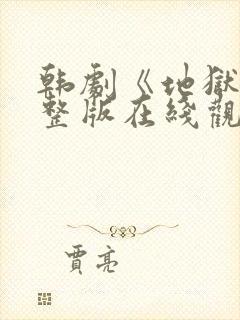 韩剧《地獄
整版在綫觀
賈亮